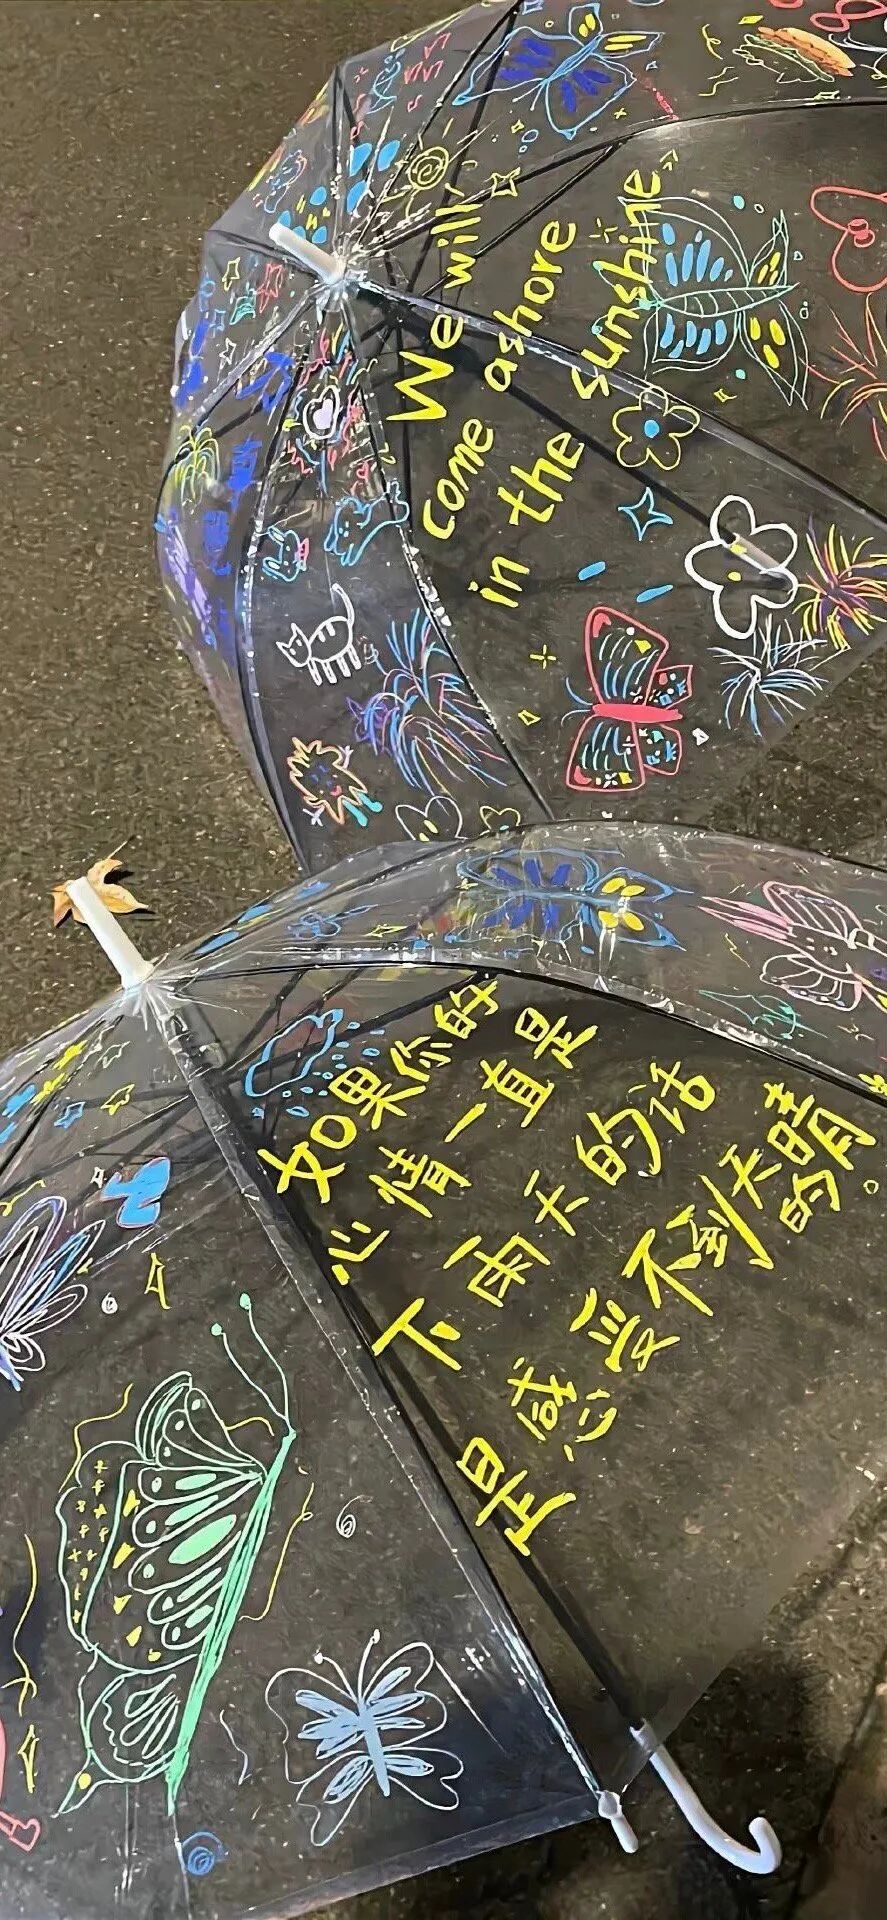 We will
come ashore
in the
sunshine
如果你的
心情一直是
下雨天的话
是感受不到天晴的